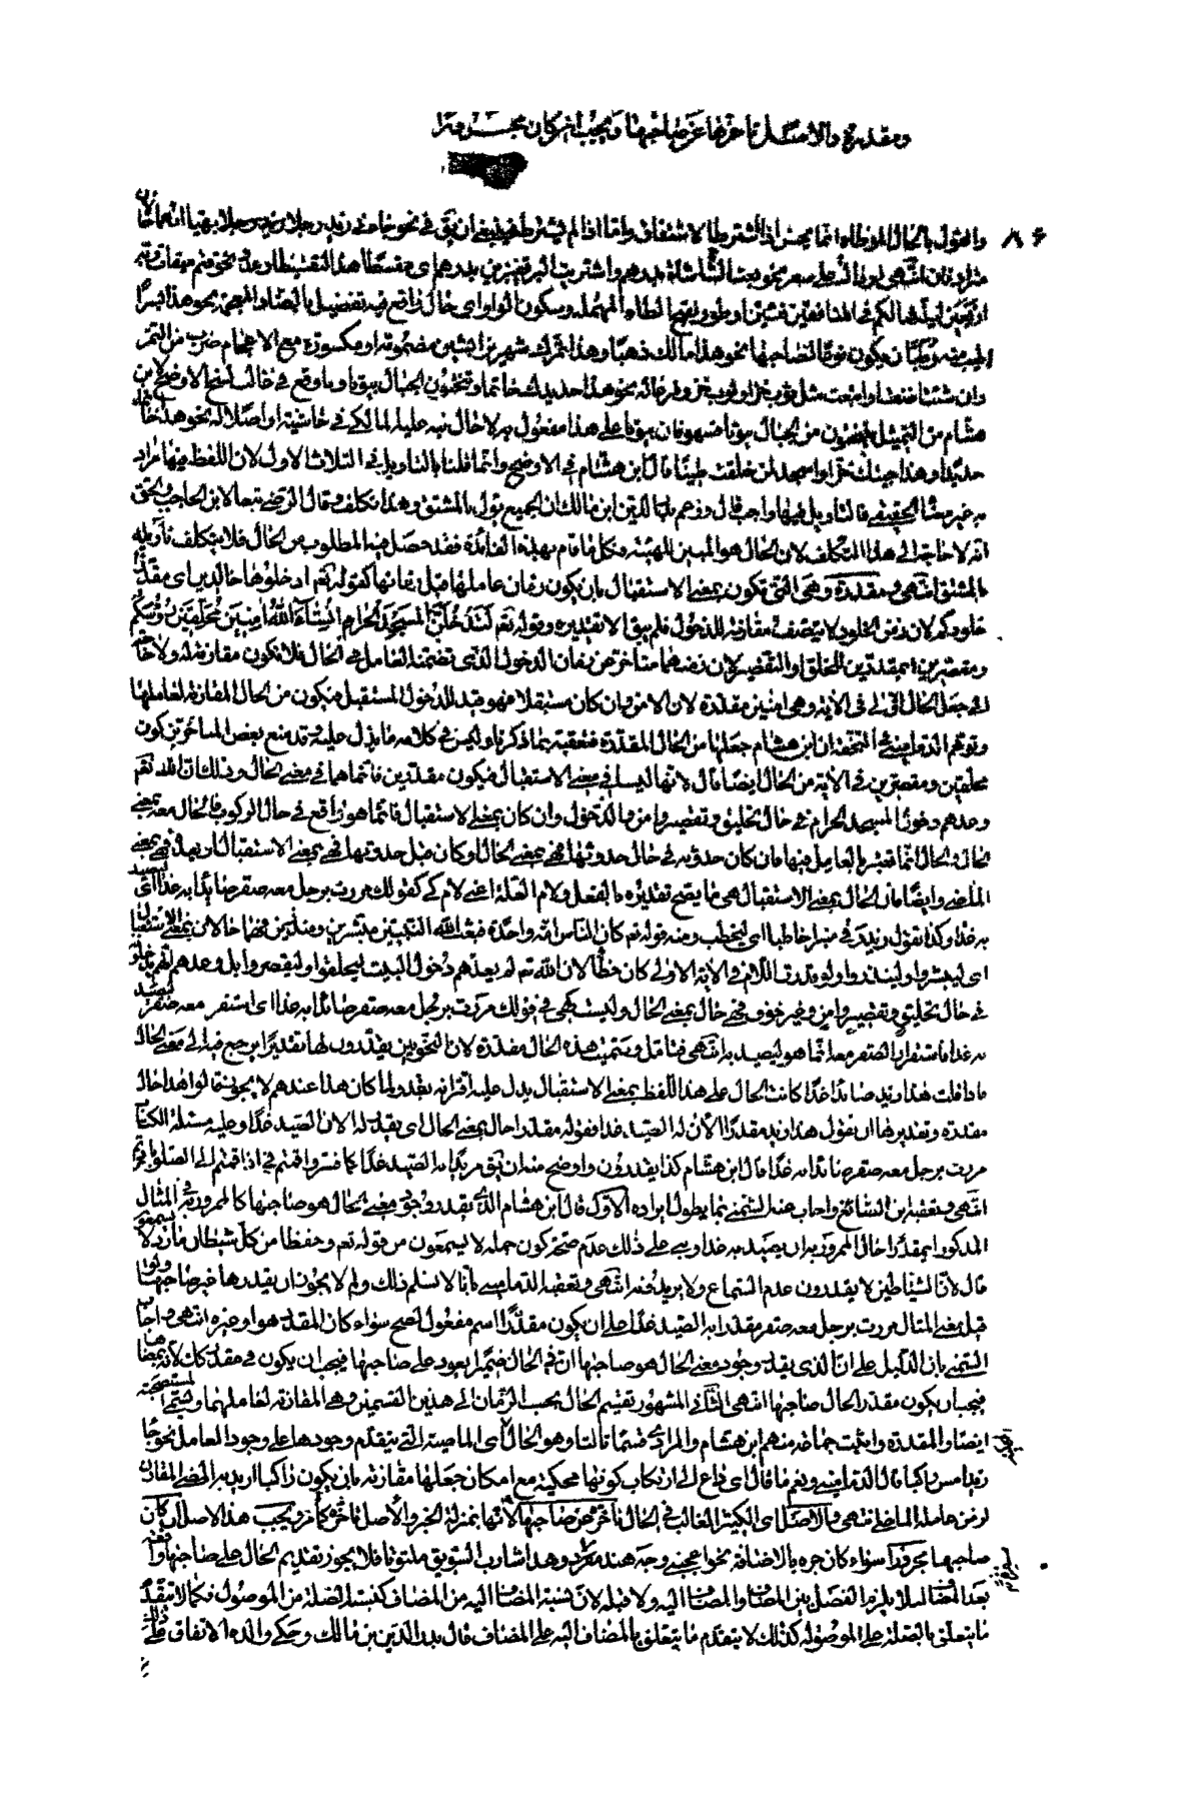 ومقدرة والاصل تاخرها عن صاحبها ويجب ان كان مجرورا
والقول بالحال الموطاه انما يحسن اذا اشترط الاشتقاق واما اذا لم يشترط فينبغي ان يق في نحو جاءني زيد رجلا انهما حالان
مترادفان انتهى او دالا على سعر نحو بعت الشاء شاة بدرهم واشتريت البر قفيزين بدرهم اى مقسطا هذا التقسيط او عدد نحو فتم ميقات ربه
اربعين ليلة فما لكم في المنافقين فئتين او طور بفتح الطاء المهملة وسكون الواو اى حال واقع فيه تفضيل بالضاد المعجمة نحو هذا بسرا
اطيب منه رطبا او يكون نوعا لصاحبها نحو هذا مالك ذهبا وهذا تمرك شهريزا بشين مضمومة او مكسورة مع الاعجام ضرب من التمر
وان شئت او اتبعت مثل ثوب خز او ثوب خز او فرعا له نحو هذا حديدك خاتما وتنحتون الجبال بيوتا وما وقع في غالب نسخ الاوضح لابن
هشام من التمثيل بتنحتون من الجبال بيوتا فسهو فان بيوتا على هذا مفعول به لا حال نبه عليه المالكي في حاشيته او اصلا له نحو هذا خاتمك
حديدا وهذا جبتك خزا وااسجد لمن خلقت طينا قال ابن هشام في الاوضح وانما قلنا بالتاويل في الثلاث الاول لان اللفظ فيها مراد
به غير معناه الحقيقي فالتاويل فيها واجب قال وزعم بدر الدين ابن مالك ان الجميع مؤول بالمشتق وهذا تكلف وقال الرضي تبعا لابن الحاجب والحق
انه لا حاجة الى هذا التكلف لان الحال هو المبين للهيئة وكل ما قام بهذه الفائدة فقد حصل فيه المطلوب من الحال فلا يتكلف تاويله
بالمشتق انتهى ومقدرة وهى التى تكون بمعنى الاستقبال بان يكون زمان عاملها قبل زمانها كقوله تعم ادخلوها خالدين اى مقدرا
خلودكم لان زمن الخلود لا يتصف مقارنته للدخول فلم يبق الا تقديره وقوله تعم لتدخلن المسجد الحرام ان شاء الله امنين محلقين رؤسكم
ومقصرين اى مقدرين للحلق او التقصير لان زمنهما متاخر عن زمان الدخول الذى تضمنه العامل في الحال فلا تكون مقارنة له ولا حاجة
الى جعل الحال الاولى في الاية وهى امنين مقدرة لان الامن وان كان مستقبلا فهو قيد للدخول المستقبل فيكون من الحال المقارنة لعاملها
وتوهم الدماميني في التحفة ان ابن هشام جعلها من الحال المقدرة فتعقبه بما ذكرنا وليس في كلامه ما يدل عليه وقد منع بعض المتاخرين كون
محلقين ومقصرين في الاية من الحال ايضا قال لانهما ليسا في معنى الاستقبال فيكون مقدرين فانما هما في معنى الحال وذلك ان الله تعم
وعدهم دخول المسجد الحرام في حال تحليق وتقصير وامن والدخول وان كان بمعنى الاستقبال فانما هو واقع في حال الركوب
الماضي وايضا فان الحال بمعنى الاستقبال هى ما يصح تقديره بالفعل ولام العلة اعني لام كى كقولك مررت برجل معه صقر صائدا به غدا اى ليصيد
به غدا وكذا تقول زيد في منبر خاطبا اى ليخطب ومنه قوله تعم كان الناس امة واحدة فبعث الله النبيين مبشرين ومنذرين فهما حالان بمعنى الاستقبال
اى ليبشروا ولينذروا ولو قدرت اللام في الاية الاولى كان خطأ لان الله تعم لم يعدهم دخول البيت ليحلقوا او ليقصروا بل وعدهم
في حال تحليق وتقصير وامن وغير خوف فهى حال بمعنى الحال وليست كهى في قولك مررت برجل معه صقر صائدا به غدا اى استقر معه صقر ليصيد
به غدا فاستقرار الصقر معه انما هو ليصيد به انتهى فتامل وسميت هذه الحال مقدرة لان النحويين يقدرون لها تقديرا يرجع فيه الى معنى الحال
فاذا قلت هذا زيد صائدا غدا كانت الحال على هذا اللفظ بمعنى الاستقبال يدل عليه اقترانه بغد ولما كان هذا عندهم لا يجوز قالوا هذا حال
مقدرة وتقديرها ان تقول هذا زيد مقدرا الان له الصيد غدا فقوله مقدرا حال بمعنى الحال اى يقدر له الان الصيد غدا وعليه مسئلة الكتاب
مررت برجل معه صقر صائدا به غدا قال ابن هشام كذا يقدرون واوضح منه ان يق مريدا به الصيد غدا كما فسروا قمتم في اذا قمتم الى الصلوة باردتم
انتهى وتعقبه ابن الصائغ واجاب عنه الشمني بما يطول ايراده الاول قال ابن هشام الذى يقدر وجود معنى الحال هو صاحبها كالممرور به في المثال
المذكور اى مقدرا حال المرور به ان يصيد به غدا وبنى على ذلك عدم صحة كون جملة لا يسمعون من قوله تعم وحفظا من كل شيطان مارد لا يسمعون
قال لان الشياطين لا يقدرون عدم السماع ولا يريدونه انتهى وتعقبه الدماميني بانا لا نسلم ذلك ولم لا يجوز ان يقدرها غير صاحبها ولو
قيل معنى المثال مررت برجل معه صقر مقدرا به الصيد غدا على ان يكون مقدرا اسم مفعول لصح سواء كان المقدر هو او غيره انتهى واجاب
الشمني بان الدليل على ان الذى يقدر وجود معنى الحال هو صاحبها ان في الحال ضميرا يعود على صاحبها فيجب ان يكون في مقدر كك لانه بمعناها
فيجب ان يكون مقدر الحال صاحبها انتهى الثانى المشهور تقسيم الحال بحسب الزمان الى هذين القسمين وهى المقارنة لعاملها وتسمى المستصحبة
ايضا والمقدرة واثبت جماعة منهم ابن هشام والمرادى قسما ثالثا وهو الحال اى الماضية التى يتقدم وجودها على وجود العامل نحو جاء
زيد امس راكبا قال الدماميني ونعم ما قال اى داع الى ارتكاب كونها محكية مع امكان جعلها مقارنة بان يكون راكبا اريد به المضى المقارن
لزمن عامله الماضي انتهى والاصل اى الكثير الغالب في الحال تاخر عن صاحبها لانها بمنزلة الخبر والاصل تاخره كما مر ويجب هذا الاصل ان كان
صاحبها مجرورا سواء كان جره بالاضافة نحو اعجبني وجه هند مسفرة وهذا شارب السويق ملتوتا فلا يجوز تقديم الحال على صاحبها واقعة
بعد المضاف لئلا يلزم الفصل بين المضاف والمضاف اليه ولا قبله لان نسبة المضاف اليه من المضاف كنسبة الصلة من الموصول فكما لا يتقدم
ما يتعلق بالصلة على الموصول كذلك لا يتقدم ما يتعلق بالمضاف اليه على المضاف قال بدر الدين بن مالك وحكى والده الاتفاق على ذلك